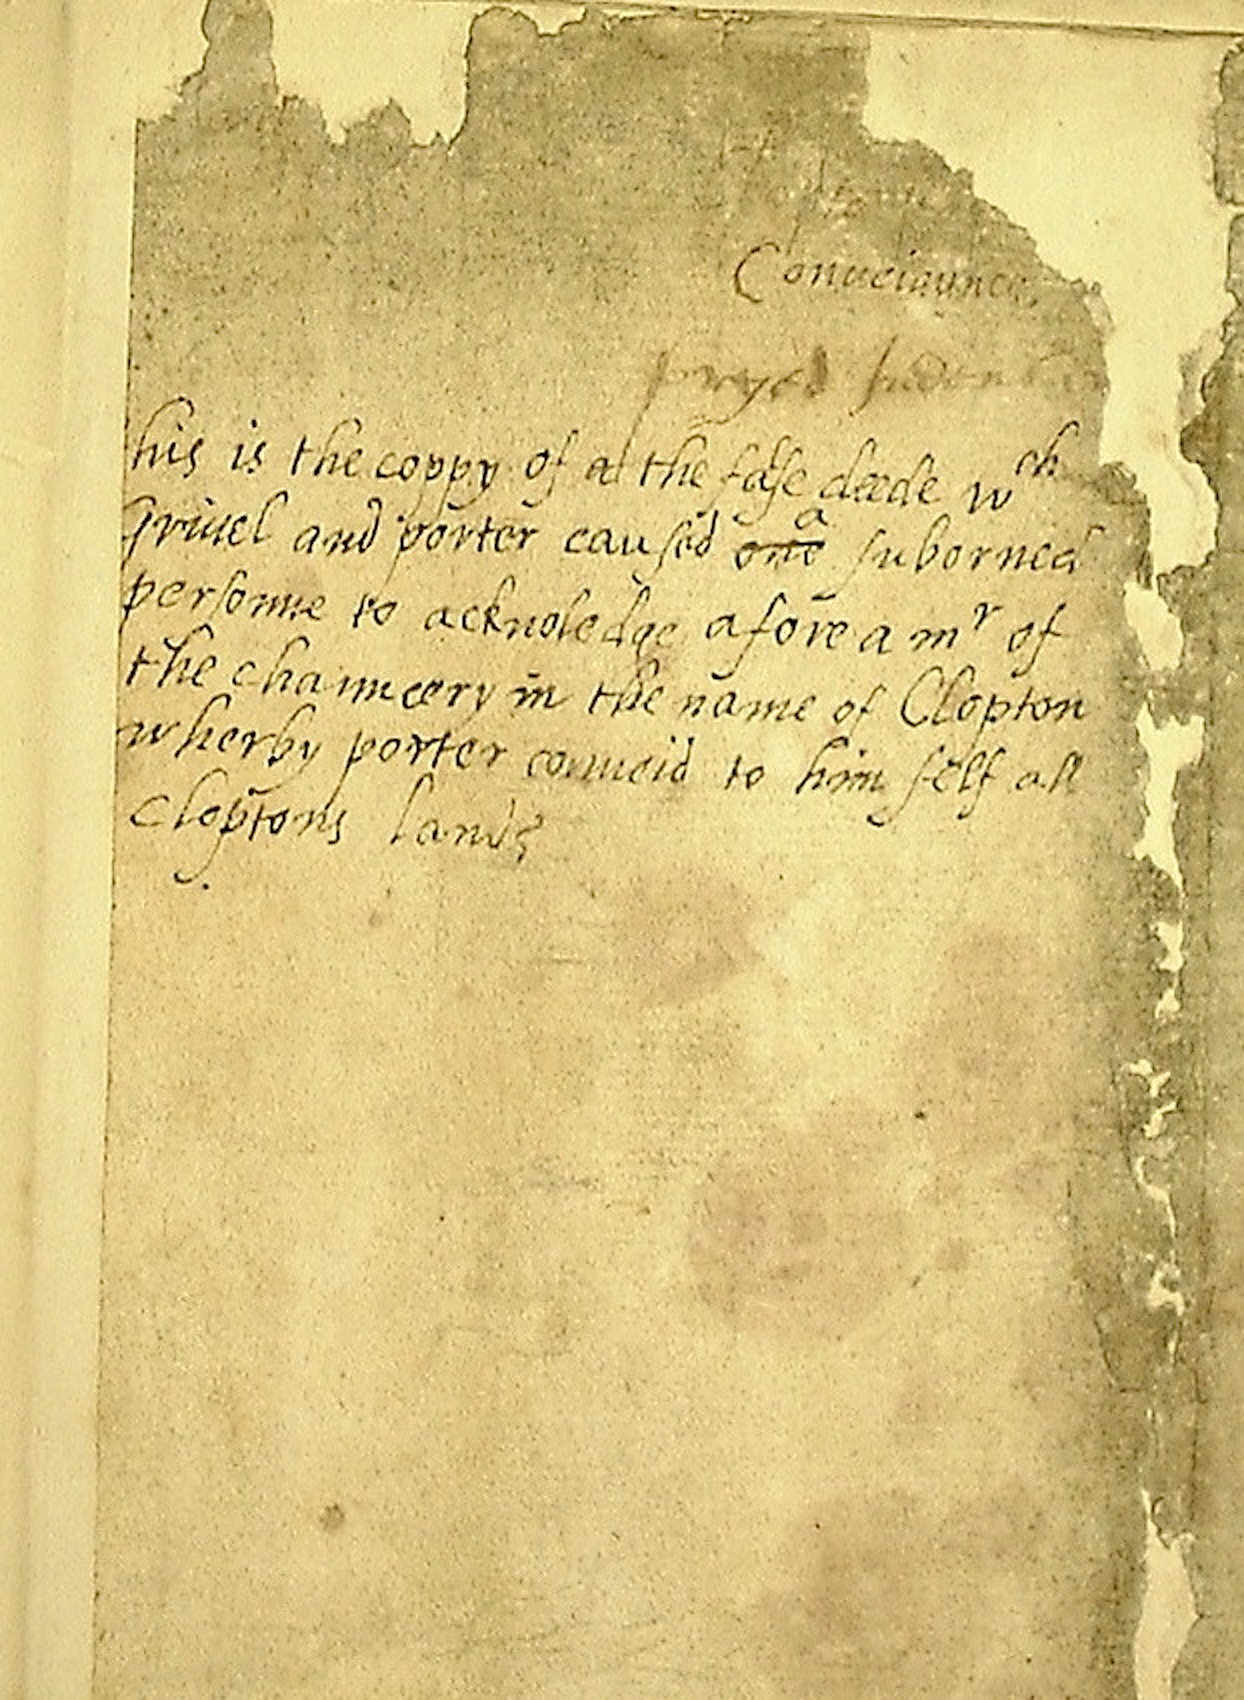 Conueiaunce.
his is the coppy of a the false deede wch
Griuel and porter caused one a suborned
personne to acknoledge afore a mr of
the chauncery in the name of Clopton
wherby porter conueid to him self all
Cloptons lands